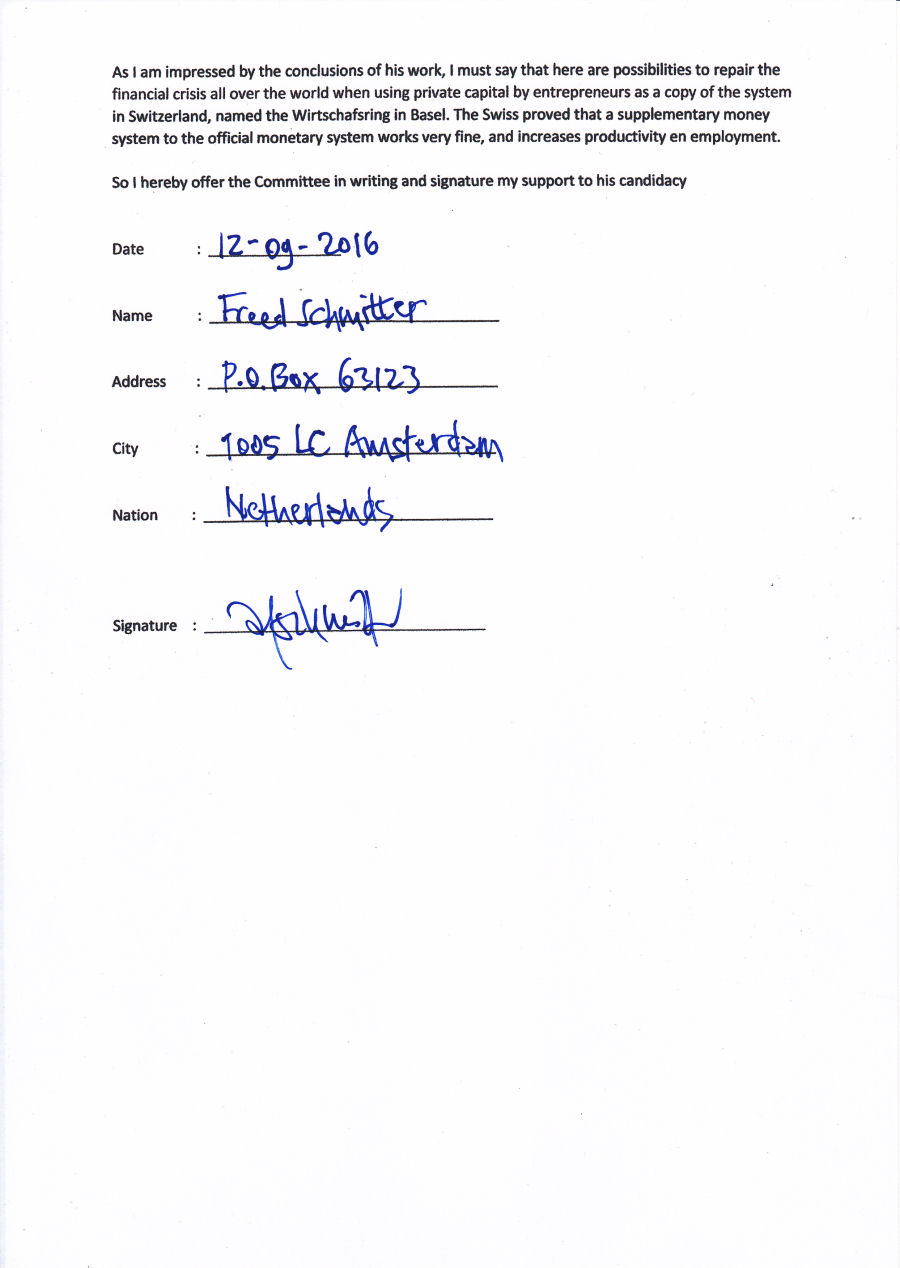 As I am impressed by the conclusions of his work, I must say that here are possibilities to repair the
financial crisis all over the world when using private capital by entrepreneurs as a copy of the system
in Switzerland, named the Wirtschafsring in Basel. The Swiss proved that a supplementary money
system to the official monetary system works very fine, and increases productivity en employment.
So I hereby offer the Committee in writing and signature my support to his candidacy
Date : 12-09-2016
Name : Freed Schmitter
Address : P.O. Box 63123
City : 1005 LC Amsterdam
Nation : Netherlands
Signature :